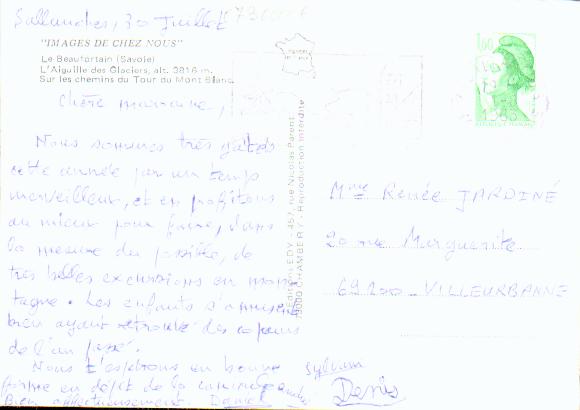 Sallanches, 30 Juillet
"IMAGES DE CHEZ NOUS"
Le Beaufortain (Savoie)
L'Aiguille des Glaciers, alt. 3816 m.
Sur les chemins du Tour du Mont Blanc.
Chère marraine,
Nous sommes très gâtés
cette année par un temps
merveilleux, et en profitons
au mieux pour faire, dans
la mesure du possible, de
très belles excursions en mon
tagne. Les enfants s'amusent
bien ayant retrouvé des copains
de l'an passé.
Nous t'espérons en bonne
forme en dépit de la canicule
Bien affectueusement. Daniel
Sylvain
Denis
Editions EDY - 457, rue Nicolas Parent
73000 CHAMBERY - Reproduction interdite
1,60
REPUBLIQUE FRANÇAISE
Mme Renée JARDINÉ
20 rue Marguerite
69200 - VILLEURBANNE